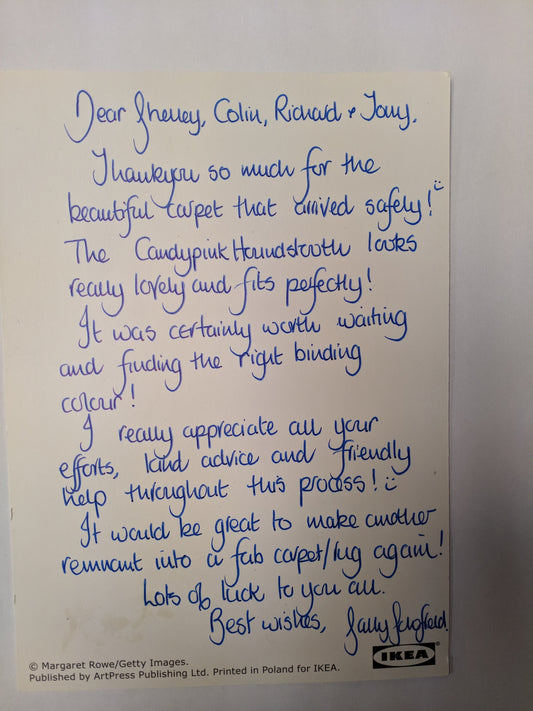 Dear Shelley, Colin, Richard + Tony,
Thankyou so much for the
beautiful carpet that arrived safely!
The Candypink Houndstooth looks
really lovely and fits perfectly!
It was certainly worth waiting
and finding the right binding
colour!
I really appreciate all your
efforts, kind advice and friendly
help throughout this process!
It would be great to make another
remnant into a fab carpet/rug again!
Lots of luck to you all.
Best wishes,
© Margaret Rowe/Getty Images.
Published by ArtPress Publishing Ltd. Printed in Poland for IKEA.
IKEA